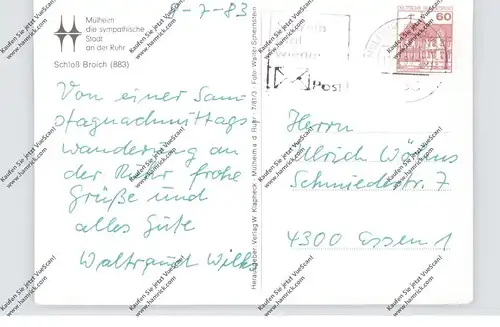 9-7-83
Mülheim
die sympathische
Stadt
an der Ruhr
Schloß Broich (883)
Von einer Sam-
stagnachmittags
wanderung an
der Ruhr frohe
Grüße und
alles Gute
Waltraud Wilks
Herausgeber: Verlag W. Klapheck · Mülheim a. d. Ruhr · 7/81/3 · Foto Walter Schernstein
DEUTSCHE BUNDESPOST
60
Post
Herrn
Ulrich
Schmiedestr. 7
4300 Essen 1
Kaufen Sie jetzt VueScan!
www.hamrick.com